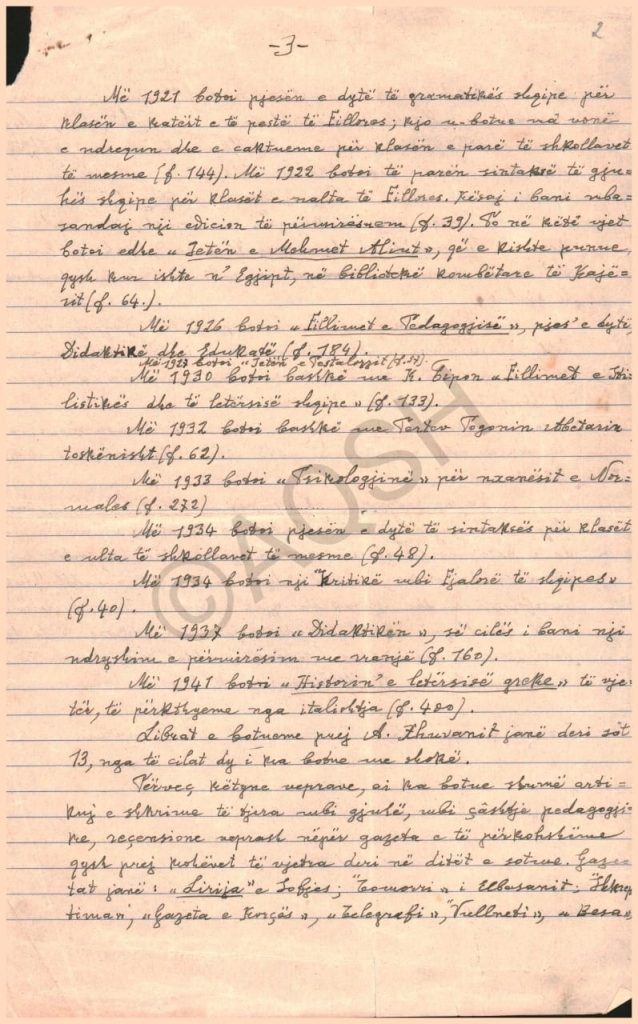 -3-
2
Më 1921 botoi pjesën e dytë të gramatikës shqipe për
klasën e katërt e të pestë të Fillores; kjo u-botue mâ vonë
e ndrequn dhe e caktueme për klasën e parë të shkollavet
të mesme (f. 144). Më 1922 botoi të parën sintaksë të gju-
hës shqipe për klasët e nalta të Fillores. Kësaj i bani mbe-
sandaj nji edicion të përmirësuem (f. 39). Po në këtë vjet
botoi edhe «Jetën e Mehmet Aliut», që e kishte punue
qysh kur ishte n' Egjipt, në bibliotekë kombëtare të Kajë-
rit (f. 64.).
Më 1926 botoi «Fillimet e Pedagogjisë», pjes' e dytë,
Didaktikë dhe Edukatë (f. 184).
Më 1927 botoi "Jetën e Pestalozzit (f. 37).
Më 1930 botoi bashkë me K. Cipon «Fillimet e Sti-
listikës dhe të letërsisë shqipe» (f. 133).
Më 1932 botoi bashkë me Pertev Pogonin Abetarin
toskënisht (f. 62).
Më 1933 botoi «Psikologjinë» për nxanësit e Nor-
males (f. 272)
Më 1934 botoi pjesën e dytë të sintaksës për klasët
e ulta të shkollavet të mesme (f. 48).
Më 1934 botoi nji "Kritikë mbi Fjalorë të shqipes»
(f. 40).
Më 1937 botoi «Didaktikën», së cilës i bani nji
ndryshim e përmirësim me rranjë (f. 160).
Më 1941 botoi «Historin' e letërsisë greke» të vje-
tër, të përkthyeme nga italishtja (f. 480).
Librat e botueme prej A. Xhuvanit janë deri sot
13, nga të cilat dy i ka botue me shokë.
Përveç këtyne veprave, ai ka botue shumë arti-
kuj e shkrime të tjera mbi gjuhë, mbi çâshtje pedagogji-
ke, reçensione veprash nëpër gazeta e të përkohshëme
qysh prej kohëvet të vjetra deri në ditët e sotme. Gaze-
tat janë: «Lirija» e Sofjes; "Tomorri» i Elbasanit; "Shkrep
timan', «Gazeta e Korçës», «Telegrafi», "Vullneti», «Besa»,
©AQSH